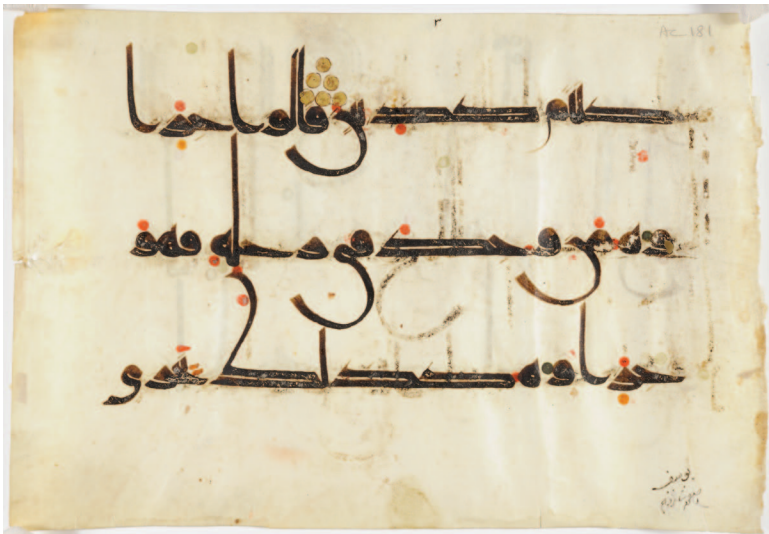 AC 181
كنتم كذبين قالوا جزا
وه من وجد في رحله فهو
جزاوه كذلك نجزي
يوسف